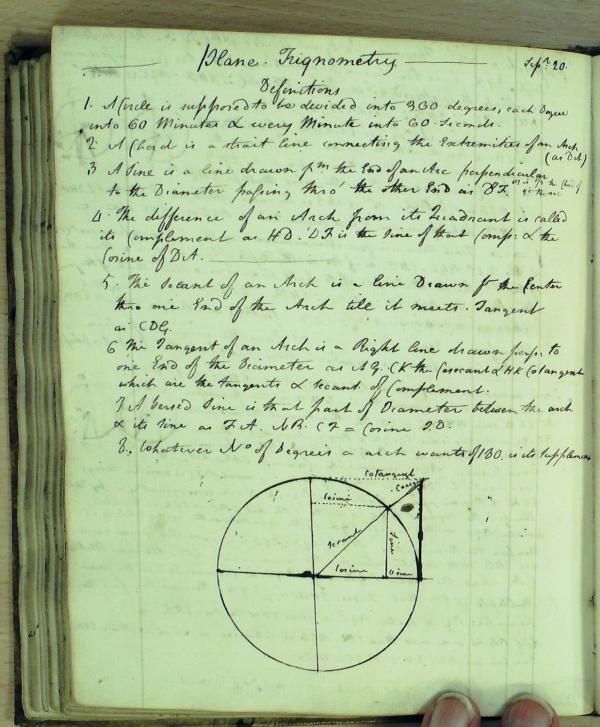 Plane. Trignometry Sepr. 20.
Definitions
1. A Circle is supposed to be divided into 360 degrees, each Degree
into 60 Minutes & every Minute into 60 Seconds.
2 A Chord is a strait line connecting the Extremities of an Arch
(as DA)
3 A Sine is a line drawn fm the End of an Arc perpendicular
to the Diameter passing thro' the other End as DF.
4 The difference of an Arch from its Quadrant is called
its Complement as HD. is the Sine of that Comp: & the
Cosine of DA.
5. The Secant of an Arch is a line Drawn fr the Center
thro one End of the Arch till it meets. Tangent
as CDG.
6 The Tangent of an Arch is a Right line drawn perp: to
one End of the Diameter as AG. CK the Cosecant & HK Cotangent
which are the tangents & Secant of Complement.
7 A Versed Sine is that part of Diameter between the arch
& its Sine as FA. NB. CF = Cosine
8. Whatever No of Degrees a arch wants of 180. is its Supplement
Cotangent
Cosec
Cosine
Secant
Sine
Cosine